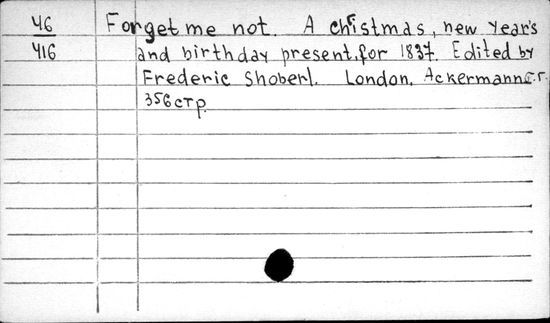 46
416
Forget me not. A christmas, new year's
and birthday present, for 1837. Edited by
Frederic Shoberl. London, Ackermann с.г.
356 стр.